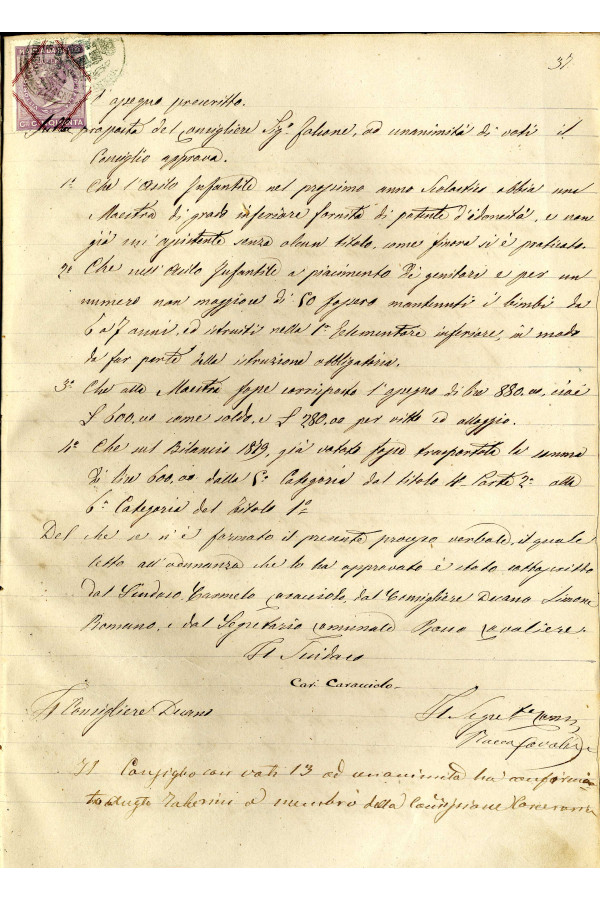 37
MARCA DA
C. CINQUANTA
l'assegno prescritto.
Sulla proposta del Consigliere Sig.r Falcone, ad unanimità di voti il
Consiglio approva.
1.° Che l'Asilo Infantile nel prossimo anno Scolastico abbia una
Maestra di grado inferiore fornita di patente d'idoneità, e non
già un'assistente senza alcun titolo, come finora si è praticato.
2.° Che nell'Asilo Infantile a piacimento di genitori e per un
numero non maggiore di 50 fossero mantenuti i bimbi da
6 a 7 anni, ed istruiti nella 1.a Elementare inferiore, in modo
da far parte della istruzione obbligatoria.
3.° Che alla Maestra fosse corrisposto l'assegno di lire 880,00, cioè
£ 600,00 come soldo, e £ 280,00 per vitto ed alloggio.
4.° Che sul Bilancio 1879, già votato fosse trasportata la somma
di lire 600,00 dalla 5.a Categoria del titolo 4.° Parte 2.a alla
6.a Categoria del titolo 1.°
Del che se n'è formato il presente processo verbale, il quale
letto all'adunanza che lo ha approvato è stato sottoscritto
dal Sindaco, Carmelo Caracciolo, dal Consigliere Decano Simone
Romano, e dal Segretario Comunale Rocco Cavaliere.
Il Sindaco
Car. Caracciolo
Il Consigliere Decano
Il Segret.e Com.
Rocco Cavaliere
Il Consiglio con voti 13 ad unanimità ha
a membro della Commissione